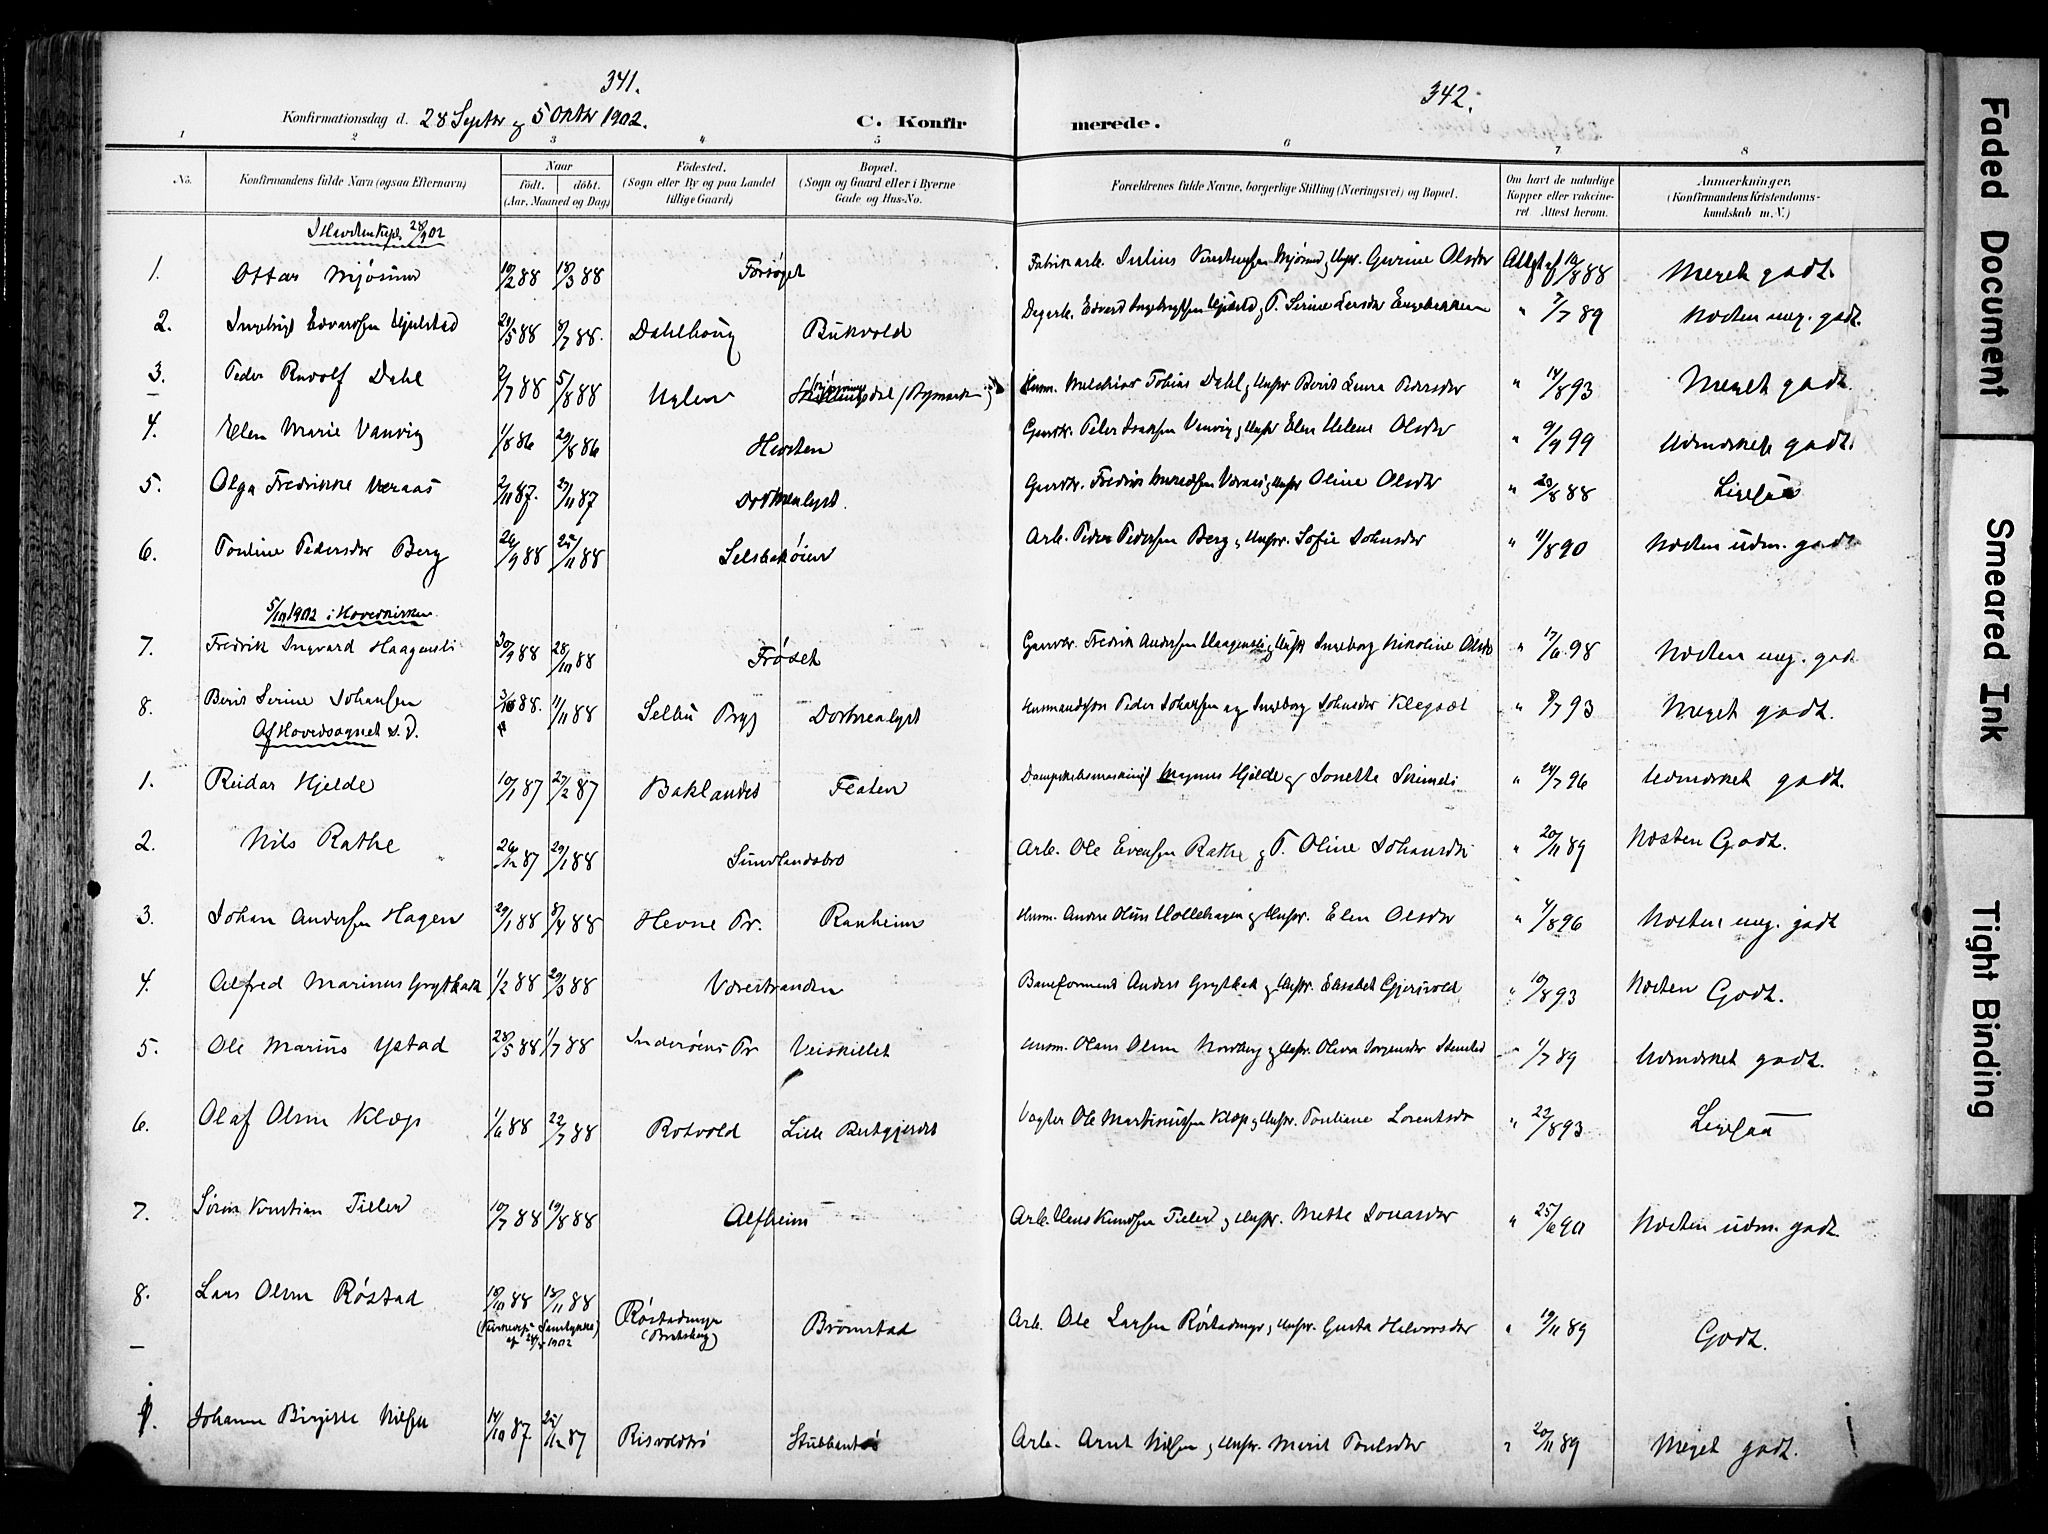 341.
342.
Konfirmationsdag d. 28 Septbr og 5 Oktbr 1902.
C. Konfir
merede.
1 2 3 4 5 6 7 8
No.
Konfirmandens fulde Navn (ogsaa Efternavn)
Naar
født. døbt.
(Aar, Maaned og Dag)
Fødested.
(Sogn eller By og paa Landet
tillige Gaard)
Bopæl.
(Sogn og Gaard eller i Byerne
Gade og Hus-No.
Forældrenes fulde Navne, borgerlige Stilling (Næringsvei) og Bopæl.
Om havt de naturlige
Kopper eller vakcine-
ret Attest herom.
Anmerkninger.
(Konfirmandens Kristendoms-
kundskab m. V.)
28/9 02
1. Ottar Mjøsund 10/2 88 18/3 88 Forsøget Fabrikarb. Julius Mjøsund og Hustr. Gurine Olsdtr Att af 12/8 88 Meget godt.
2. Ingebrigt Edvardsen Hjelstad 29/5 88 8/7 88. Dahlhaug Bukvold " 7/7 89 Næsten meg. godt.
3. Peder Rudolf Dahl 2/7 88 5/8 88 Uglen Husm. Melchior Tobias Dahl og Hustr Berit Pedersdtr " 14/8 93 Meget godt.
4. Elen Marie Vanvig 1/8 86 29/8 86 Havsten Gaardbr. Peter Isaksen Vanvig og Hustr Elen Helene Olsdtr " 9/9 99 Udmerket godt.
5. Olga Fredrikke Veraas 2/11 87. 27/11 87 Dorthealyst. Oline Olsdtr " 23/8 88 Ligesaa
6. Pauline Pedersdtr Berg 26/9 88 25/11 88 Selsbakøien Arb. Peder Pedersen Berg og Hustr. Sofie Johnsdtr " 11/8 90 Næsten udm. godt
5/10 1902 i Hovedkirken
7. Fredrik Ingvard Haagensli 30/9 88 28/10 88 Frøset Gaardbr. Fredrik Andersen Haagensli og Hustr Ingeborg Nikoline Olsdtr " 17/6 98 Næsten meg. godt
8. Berit Serine Johansen 3/10 88. 11/11 88 Selbu Prgj Dorthealyst Peder Johansen og Ingeborg Johnsdtr Klegset " 8/7 93 Meget godt.
Af Hovedsognet s. D.
1. Reidar Hjelde 10/1 87 27/2 87 Baklandet Flaten Magnus Hjelde og Jonette " 24/7 96 Udmerket godt.
2. Nils Rathe 26/12 87 29/1 88 Sundlandsbro Arb. Ole Evensen Rathe og P. Oline Johansdtr " 20/11 89 Næsten Godt.
3. Johan Andersen Hagen 29/1 88 8/4 88 Hevne Pr. Ranheim Husm. Anders Olsen Hollehagen og Hustr. Elen Olsdtr " 4/8 96 Næsten meg. godt
4. Alfred Marinus Grytbak 1/2 88 29/3 88 Værestranden Baneformand Anders Grytbak og Hustr. Elisabet Gjersvold " 10/8 93 Næsten Godt.
5. Ole Marius Ystad 28/5 88 1/7 88 Inderøens Pr Veiskillet Husm. Olaus Olsen Nordberg og Hustr. Oliva Jørgensdtr " 1/7 89 Udmerket godt.
6. Olaf Olsen Klæp 1/6 88 22/7 88 Rotvold Lille Bertgjerdet Vagter Ole Martinusen Klæp og Hustr. Pauliane Lorentsdtr " 22/8 93 Ligesaa
7. Søren Kristian Tiller 10/7 88 19/8 88 Alfheim Arb. Hans Knudsen Tiller og Hustr. Mette Jonasdtr " 25/6 90 Næsten udm. godt.
8. Lars Olsen Røstad 18/10 88 18/11 88 Røstadenge Brømstad Arb. Ole Larsen Røstadenge og Hustr. Gusta Halvorsdtr " 19/11 89 Godt.
(Bratsberg)
1902
1. Johanne Birgitte Nilsen 14/10 87 25/12 87 Risvoldtrø Stubbantrø Arb. Arnt Nilsen og Hustr. Marit Paulsdtr " 20/11 89 Meget godt.
Faded Document
Smeared Ink
Tight Binding